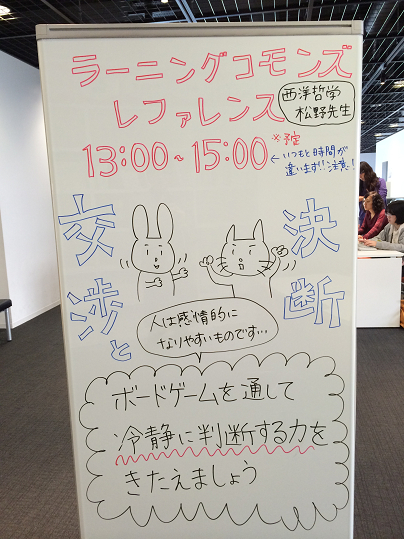 ラーニングコモンズ
レファレンス
西洋哲学
松野先生
13:00~15:00
※予定
←いつもと時間が
違います!!注意!!
交渉と
決断
人は感情的に
なりやすいものです…
ボードゲームを通して
冷静に判断する力を
きたえましょう